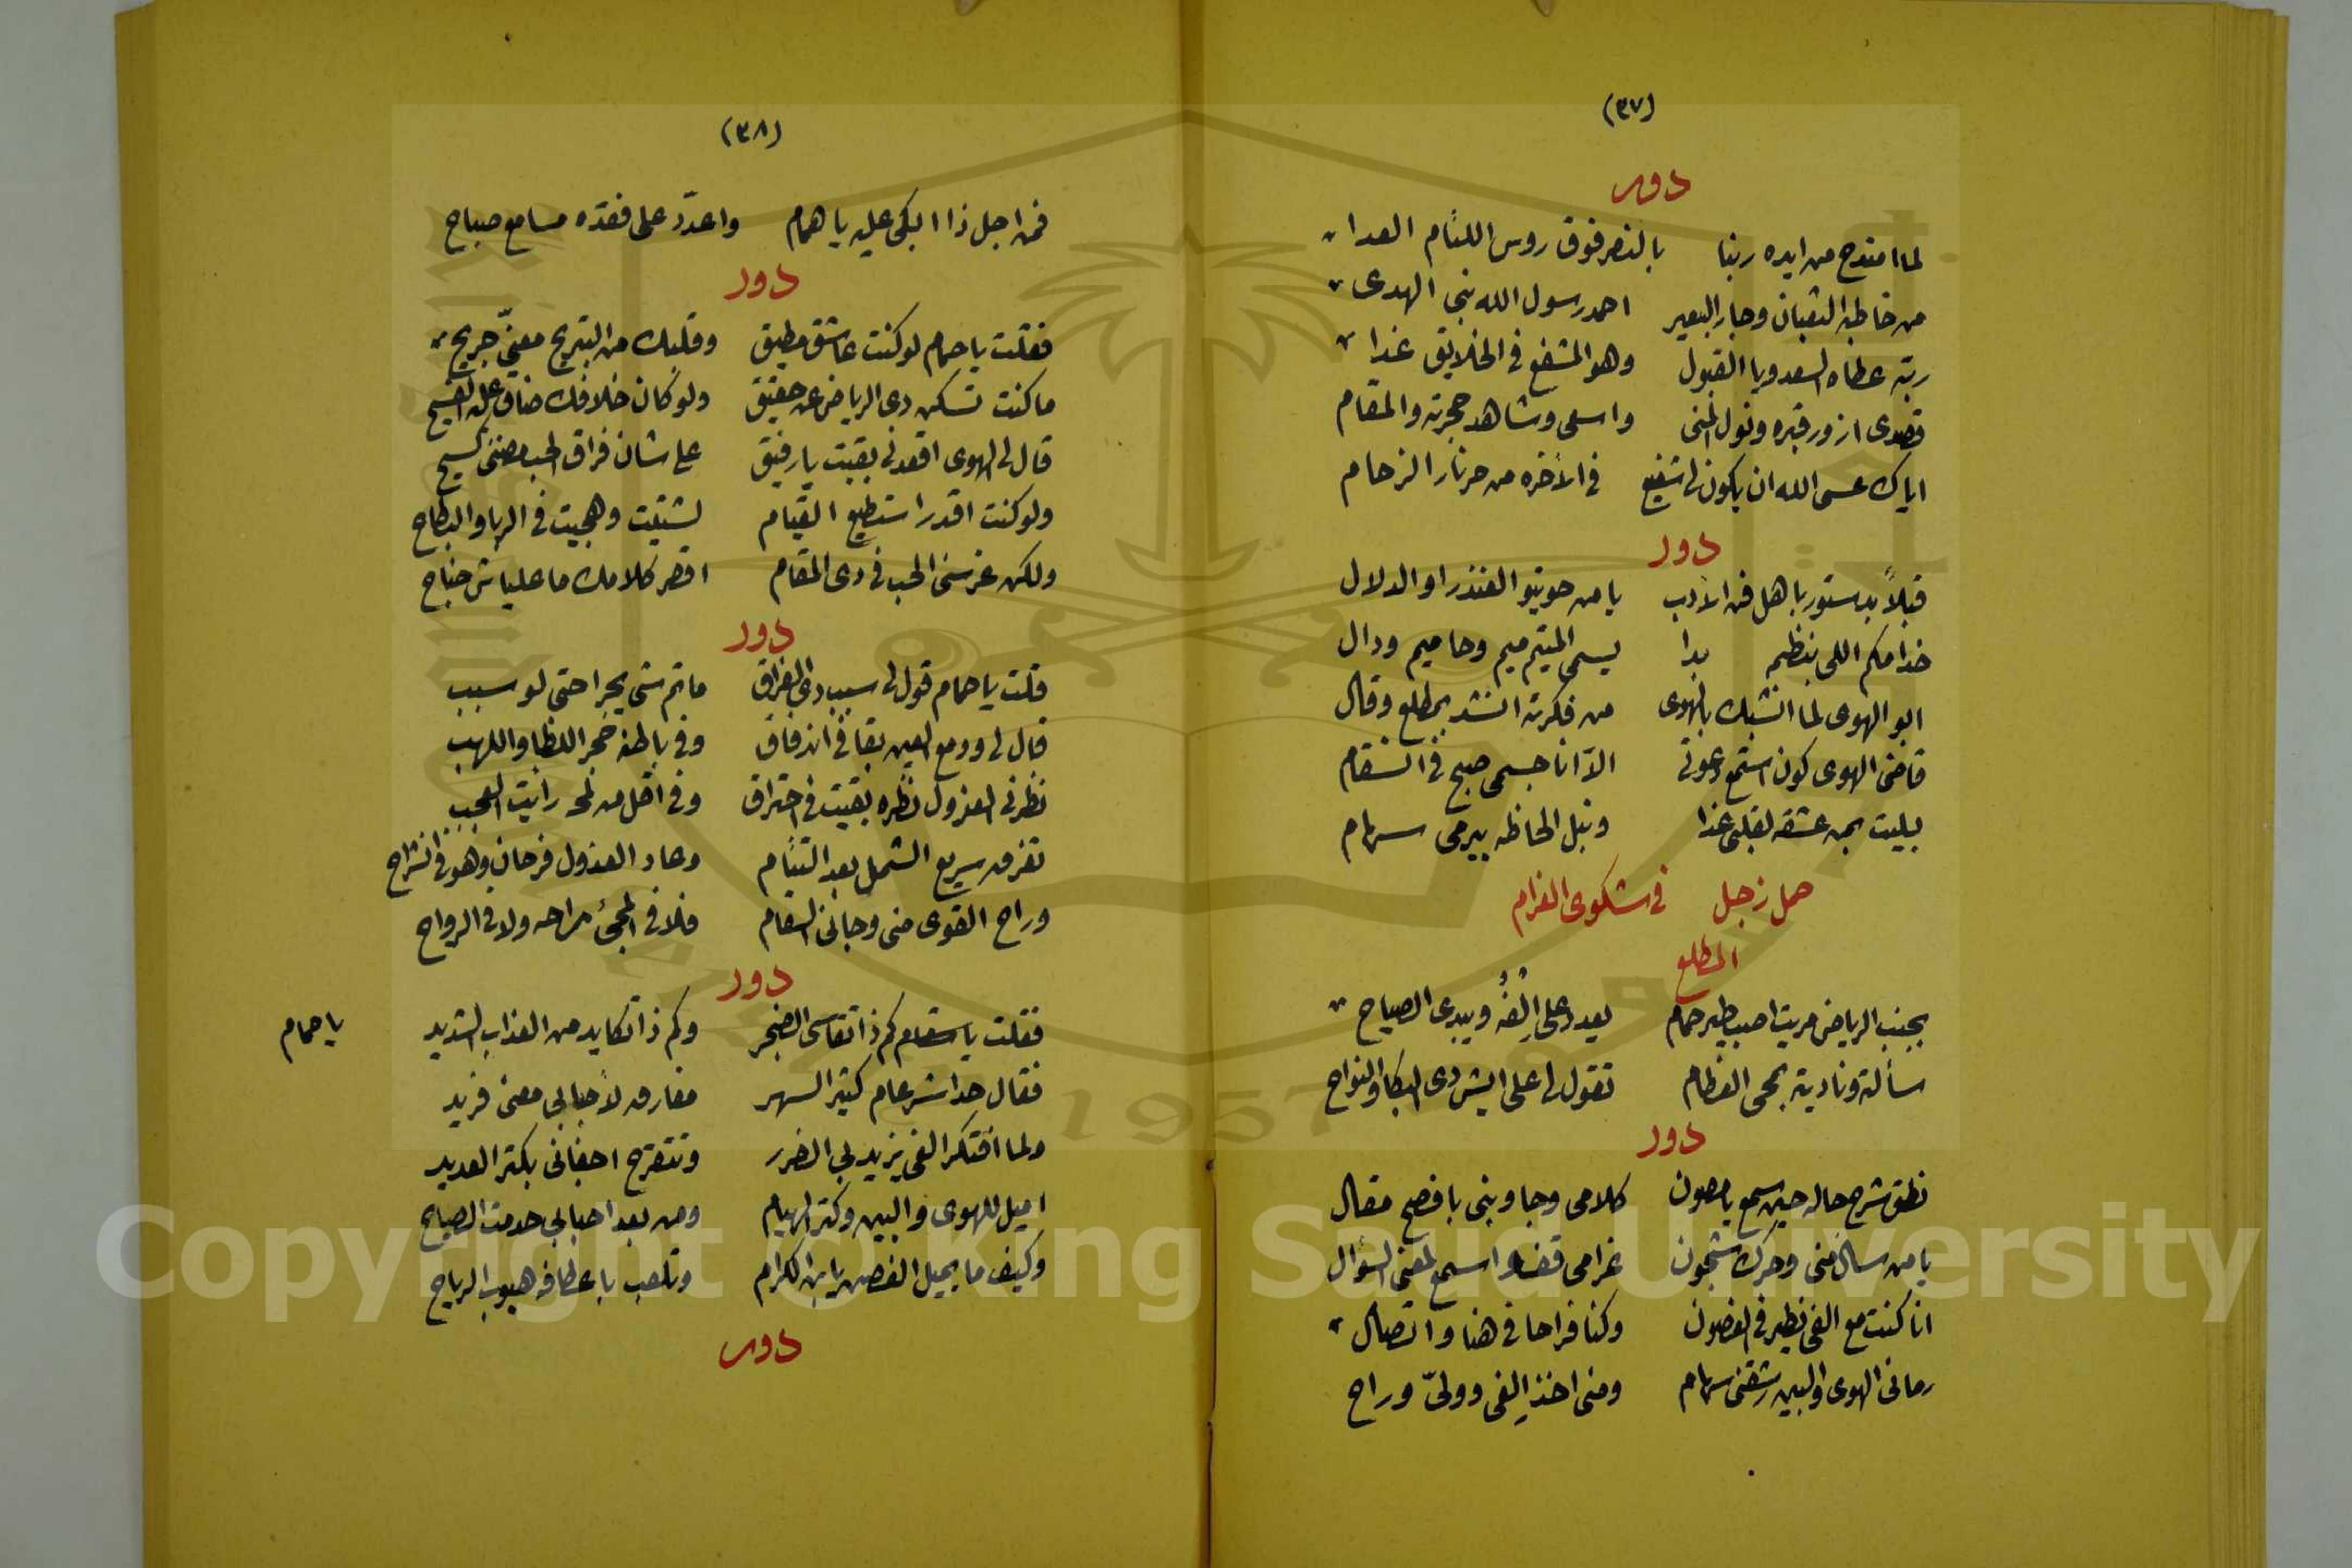 (٣٧)
دور
لما امتدح من ايده ربنا بالنصر فوق روس اللئام العدا
من خاطبه الثعبان وجار البعير احمد رسول الله نبى الهدى
ربّه عطاه السعد ويا القبول وهو المشفع فى الخلايق غدا
قصدى ازور قبره ونول المنى واسعى وشاهد حجرته والمقام
اياك عسى الله ان يكون لى شفيع فى الآخره من حر نار الزحام
دور
قبلاً بدستور يا هل فن الأدب يا من حويتو الفندرا والدلال
خدامكم اللى بنظيم بدا يسمى المتيم ميم وحا ميم ودال
ابو الهوى لما انشبك بالهوى من فكرته انشد بمطلع وقال
قاضى الهوى كون استمع دعوتى الّا انا جسمى صبح فى السقام
بليت بمن عشقه لقلبى غذا ونبل الحاظه بيرمى سهام
حمل زجل فى شكوى الغرام
المطلع
بجنب الرياض مريت اصيب طير حمام يعدد على اِلْفُهُ ويبدى الصياح
سألته وناديته بمحى العظام تقول لى على ايش دى البكا والنواح
دور
نطق شرح حاله حين سمع يا مصون كلامى وجاوبنى بافصح مقال
يا من سال منى وحرك شجون غرامى قضا اسمع لمعنى السؤال
انا كنت مع الفى نطير فى الغصون وكنا فراحا فى هنا واتصال
رمانى الهوى والبين رشقنى سهام ومنى اخذ اِلفى وولىّ وراح
(٣٨)
فمن اجل ذا ابكى عليه يا همام واعدّد على فقده مسا مع صباح
دور
فقلت يا حمام لو كنت عاشق مطيق وقلبك من التبريح معنىّ جريح
ما كنت تسكن دى الرياض عن حقيق ولو كان خلافك ضاق عليه الفسيح
قال لى الهوى اقعدنى بقيت يا رفيق على شان فراق الحب مضنى كسيح
ولو كنت اقدر استطيع القيام لشتيت وهجيت فى الربا والبطاح
ولكن غرسنى الحب فى دى المقام اقصر كلامك ما عليا ش جناح
دور
قلت يا حمام قول لى سبب دى الفراق ما تم شى يجرا حتى لو سبب
قال لى ودمع العين بقا فى اندفاق وفى باطنه جمر اللظا واللهب
نظرنى العزول نظره بقيت فى احتراق وفى اقل من لمحه رأيت العجب
تفرق سريع الشمل بعد التئام وعاد العذول فرحان وهو فى انشراح
وراح القوى منى وجانى السقام فلا فى المجئ راحه ولا فى الرواح
دور
فقلت يا سقام كم ذا تقاسى الضجر وكم ذا تكايد من العذاب الشديد يا حمام
فقال حداشر عام كتير السهر مفارق لأحبابى معنى فريد
ولما افتكر الفى يزيد بى الضرر وتتقرح اجفانى بكتر العديد
اميل للهوى والبين وكتر الهيام ومن بعد احبابى حدمت الصياح
وكيف ما يميل الغصن يا بن الكرام وتلعب باعطافه هبوب الرياح
دور
Copyright © King Saud University
1957